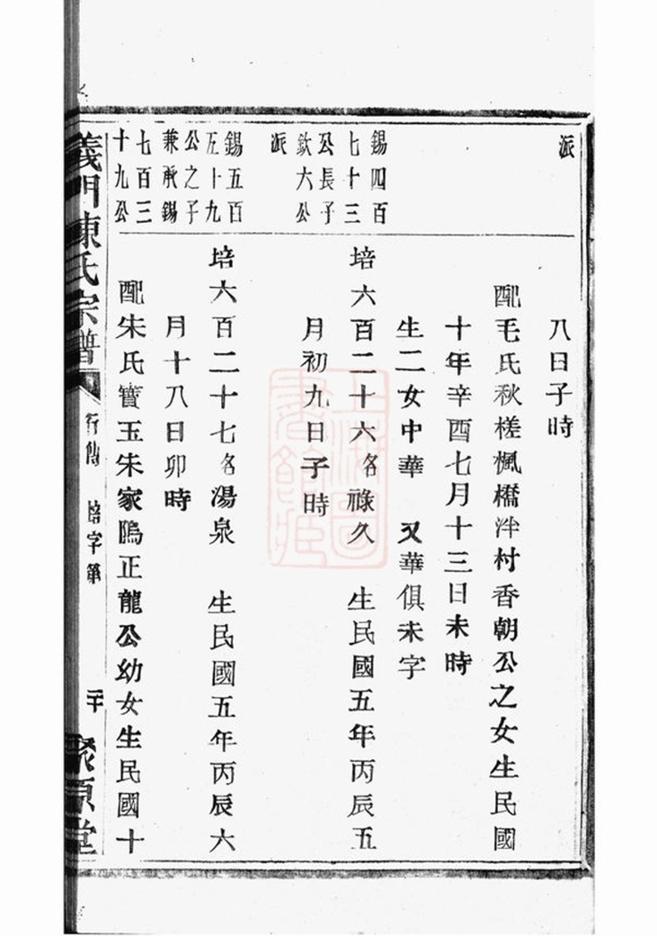 派
八日子時
配毛氏秋槎楓橋泮村香朝公之女生民國
十年辛酉七月十三日未時
生二女中華 又華俱未字
錫四百
七十三
公長子
欽六公
派
培六百二十六名祿久 生民國五年丙辰五
月初九日子時
錫五百
五十九
公之子
兼承錫
七百三
十九公
培六百二十七名湯泉 生民國五年丙辰六
月十八日卯時
配朱氏寶玉朱家隝正龍公幼女生民國十
義門陳氏宗譜
行傳 培字第
聚原堂